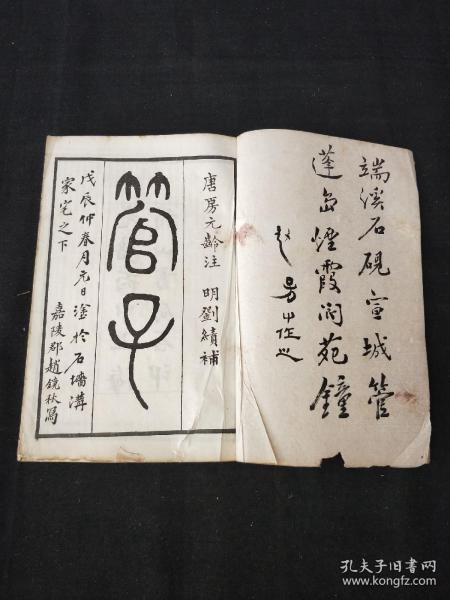 端溪石硯宣城管
蓬島煙霞閬苑鐘
唐房元齡注 明劉績補
管子
戊辰仲春月元日塗於石墻溝
家宅之下
嘉陵郡趙鏡秋寫
孔夫子旧书网
www.kongfz.com